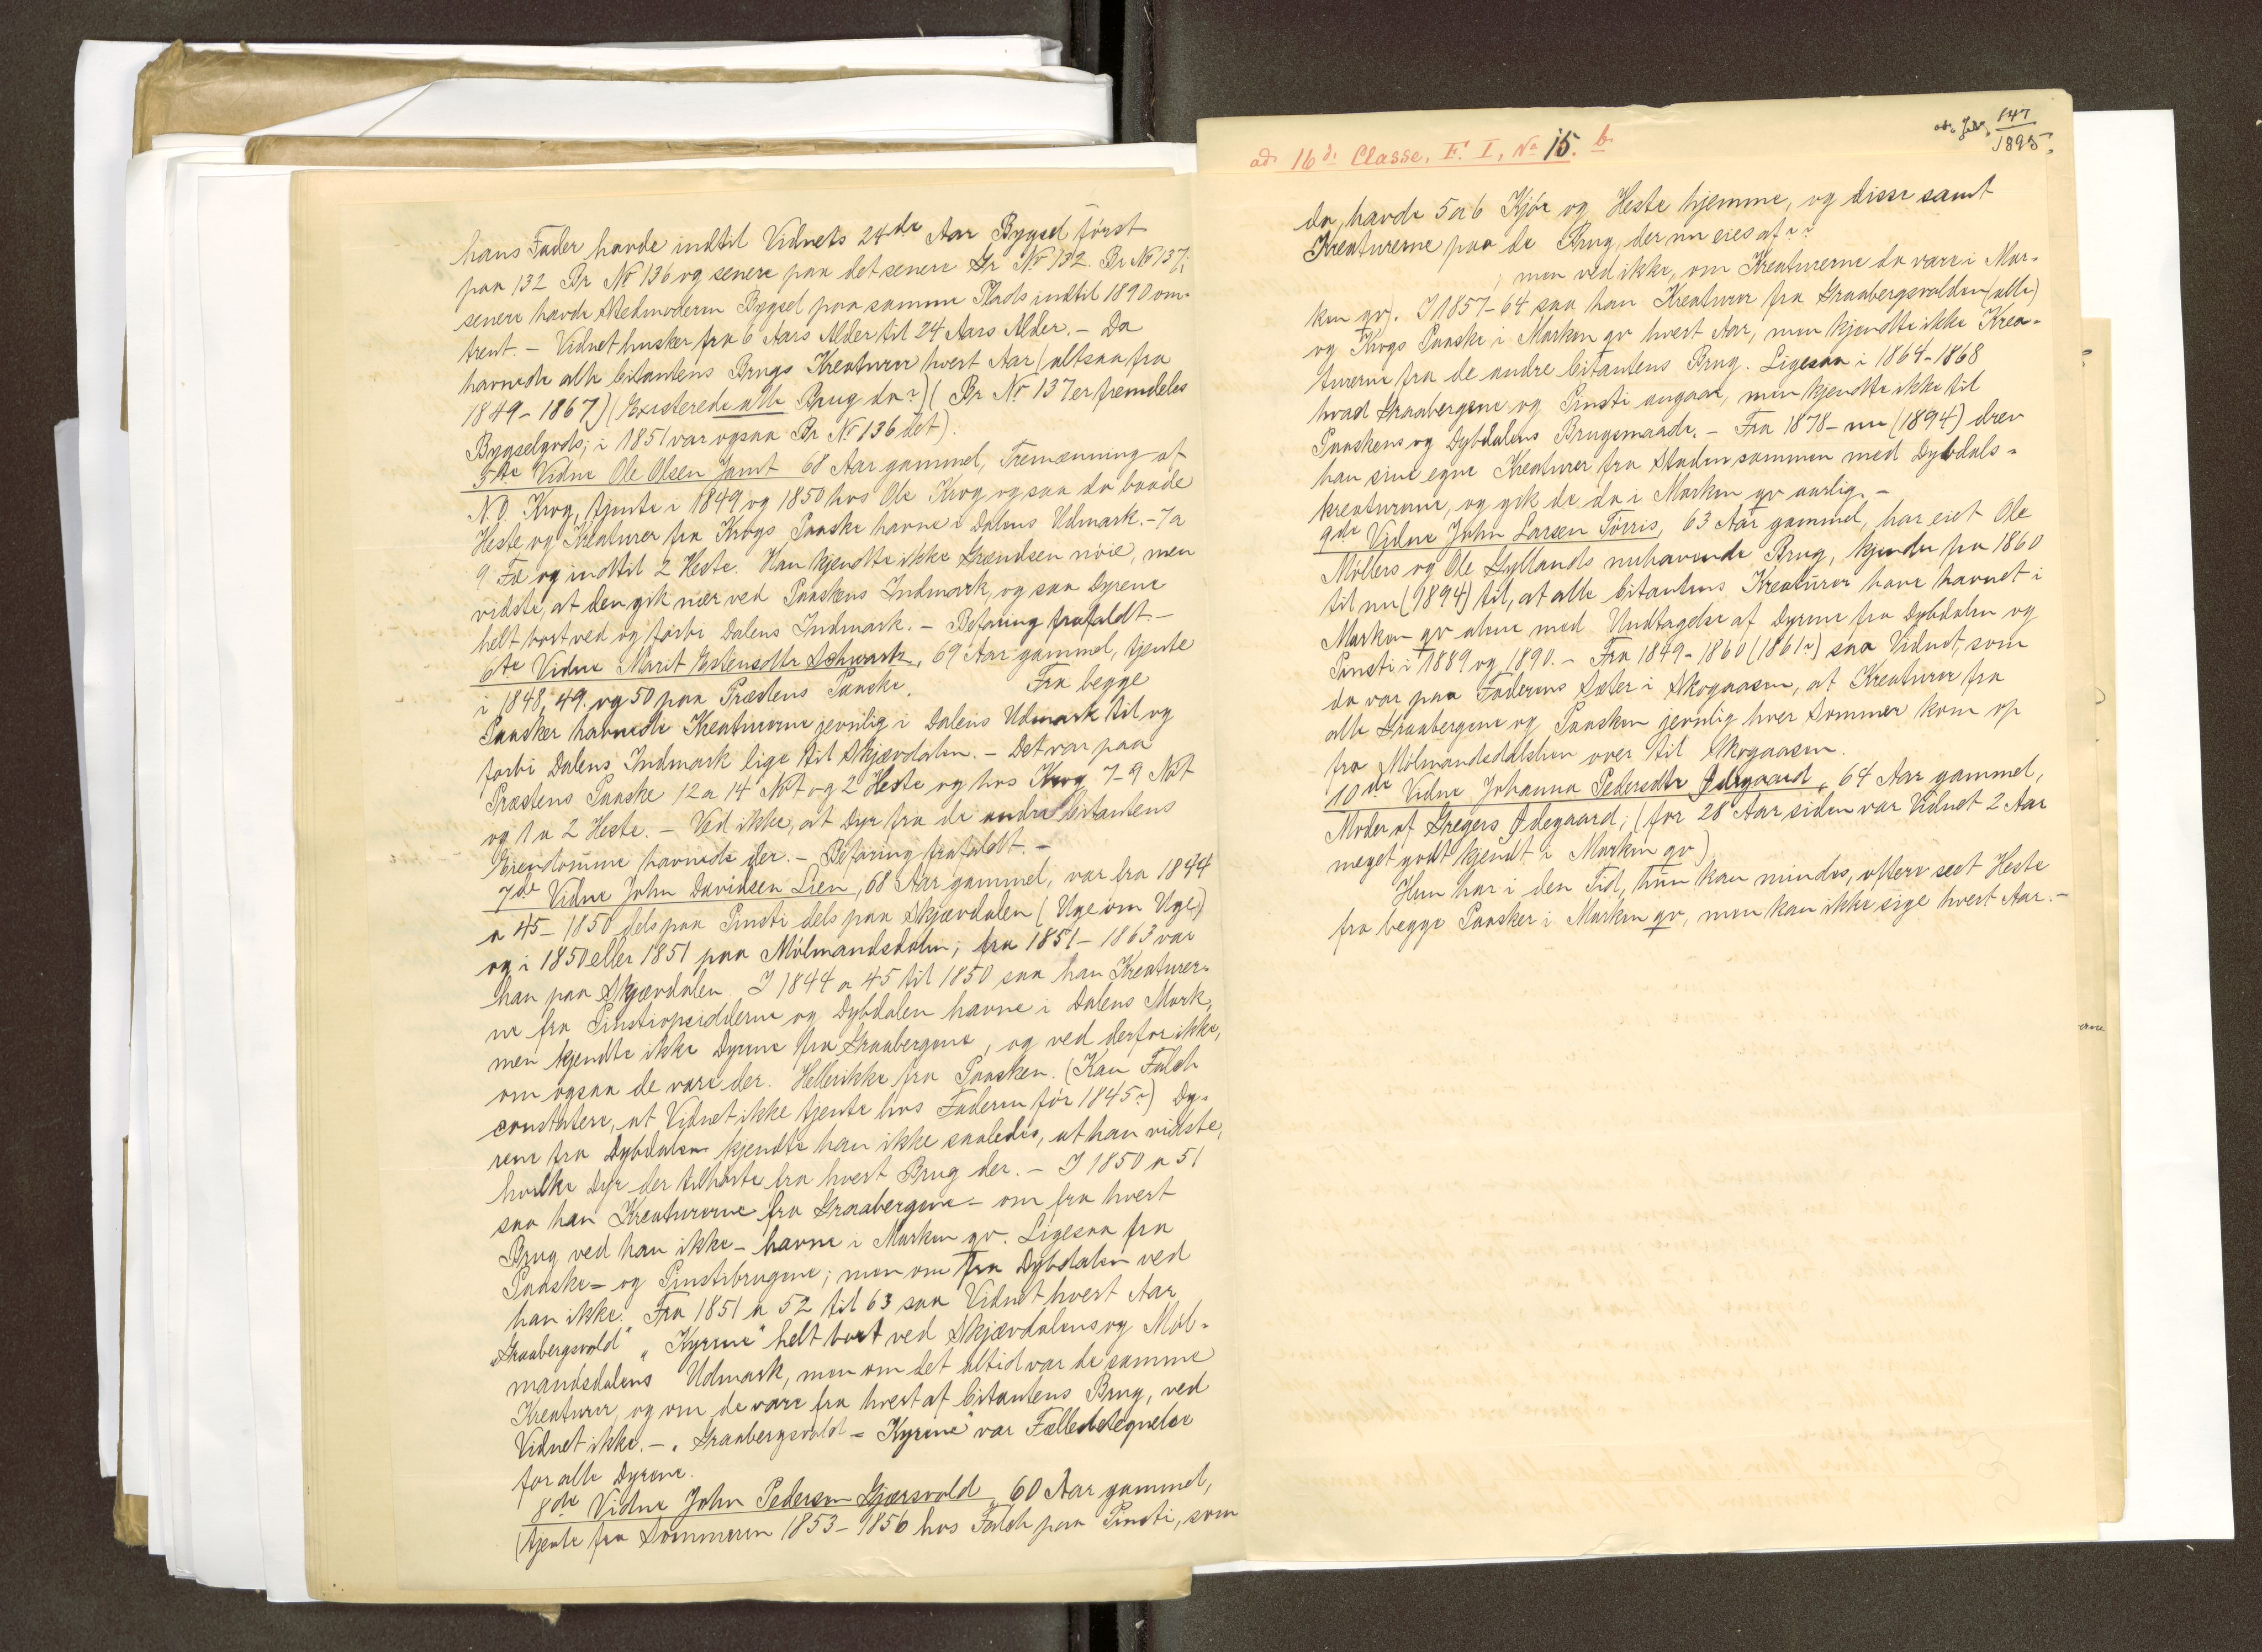 hans Fader havde indtil Vidnets 24de Aar Bygsel først
paa 132 Br No 136 og senere paa det senere Gr No 132. Br No 137;
senere havde Stedmoderen Bygsel paa samme Plads indtil 1890 om-
trent. – Vidnet husker fra 6 Aars Alder til 24 Aars Alder. – Da
havnede alle Citantens Brugs Kreaturer hvert Aar (altsaa fra
1849–1867) (Existerede alle Brug da?) (Br No 137 er fremdeles
Bygselgods; i 1851 var ogsaa Br No 136 det).
5te Vidne Ole Olsen Jamt 68 Aar gammel, Tremænning af
N. O. Krog, tjente i 1849 og 1850 hos Ole Krog og saa da baade
Heste og Kreaturer fra Krogs Paaske havne i Dalens Udmark. – 7 a
9 Fæ og indtil 2 Heste. Han kjendte ikke Grændsen nøie, men
vidste, at den gik nær ved Paaskens Indmark, og saa Dyrene
helt bort ved og forbi Dalens Indmark. – Befaring frafaldt. –
6te Vidne Marit Estensdtr Schwark, 69 Aar gammel, tjente
i 1848, 49. og 50 paa Præstens Paaske. Fra begge
Paasker havnede Kreaturerne jevnlig i Dalens Udmark til og
forbi Dalens Indmark lige til Skjævdalen. – Det var paa
Præstens Paaske 12 a 14 Nøt og 2 Heste og hos Krog 7–9 Nøt
og 1 a 2 Heste. – Ved ikke, at Dyr fra de andre Citantens
Eiendomme havnede der. – Befaring frafaldt. –
7de Vidne John Davidsen Lien, 68 Aar gammel, var fra 1844
a 45–1850 dels paa Pinsti dels paa Skjævdalen (Uge om Uge)
og i 1850 eller 1851 paa Mølmandsdalen; fra 1851–1863 var
han paa Skjævdalen. I 1844 a 45 til 1850 saa han Kreaturer-
ne fra Pinstiopsidderne og Dybdalen havne i Dalens Mark,
men kjendte ikke Dyrene fra Graabergene, og ved derfor ikke,
om ogsaa de vare der. Heller ikke fra Paasken. (Kan Falch
constatere, at Vidnet ikke tjente hos Faderen før 1845?) Dy-
rene fra Dybdalen kjendte han ikke saaledes, at han vidste,
hvilke Dyr der tilhørte fra hvert Brug der. – I 1850 a 51
saa han Kreaturerne fra Graabergene – om fra hvert
Brug ved han ikke – havne i Marken qv. Ligesaa fra
Paaske- og Pinstibrugene; men om fra Dybdalen ved
han ikke. Fra 1851 a 52 til 63 saa Vidnet hvert Aar
„Graabergsvold" „Kyrene" helt bort ved Skjævdalens og Møl-
mandsdalens Udmark, men om det altid var de samme
Kreaturer, og om de vare fra hvert af Citantens Brug, ved
Vidnet ikke. – „Graabergsvold-Kyrene" var Fællesbetegnelse
for alle Dyrene.
8de Vidne John Pedersen Gjærsvold, 60 Aar gammel,
(tjente fra Sommeren 1853–1856 hos Falch paa Pinsti, som
ad 16de Classe, F. I, No 15. b.
ad. Jdr. 147
1895.
da, havde 5 a 6 Kjør og Heste hjemme, og disse samt
Kreaturerne paa de Brug, der nu eies af ? ?
; men ved ikke, om Kreaturerne da vare i Mar-
ken qv). I 1857–64 saa han Kreaturer fra Graabergsvolden (alle)
og Krogs Paaske i Marken qv hvert Aar, men kjendte ikke Krea-
turerne fra de andre Citantens Brug. Ligesaa i 1864–1868
hvad Graabergene og Pinsti angaar, men kjendte ikke til
Paaskens og Dybdalens Brugsmaade. – Fra 1878–nu (1894) drev
han sine egne Kreaturer fra Staden sammen med Dybdals-
kreaturerne, og gik de da i Marken qv aarlig. –
9de Vidne John Larsen Tørris, 63 Aar gammel, har eiet Ole
Møllers og Ole Gyllands nuhavende Brug, kjender fra 1860
til nu (1894) til, at alle Citantens Kreaturer have havnet i
Marken qv alene med Undtagelse af Dyrene fra Dybdalen og
Pinsti i 1889 og 1890. – Fra 1849–1860 (1861?) saa Vidnet, som
da var paa Faderens Sæter i Skogaasen, at Kreaturer fra
alle Graabergene og Paasken jevnlig hver Sommer kom op
fra Mølmandsdalslien over til Skogaasen.
10de Vidne Johanna Pedersdtr Ødegaard, 64 Aar gammel,
Moder af Gregers Ødegaard; (for 28 Aar siden var Vidnet 2 Aar
meget godt kjendt i Marken qv)
Hun har i den Tid, hun kan mindes, oftere seet Heste
fra begge Paasker i Marken qv, men kan ikke sige hvert Aar. –